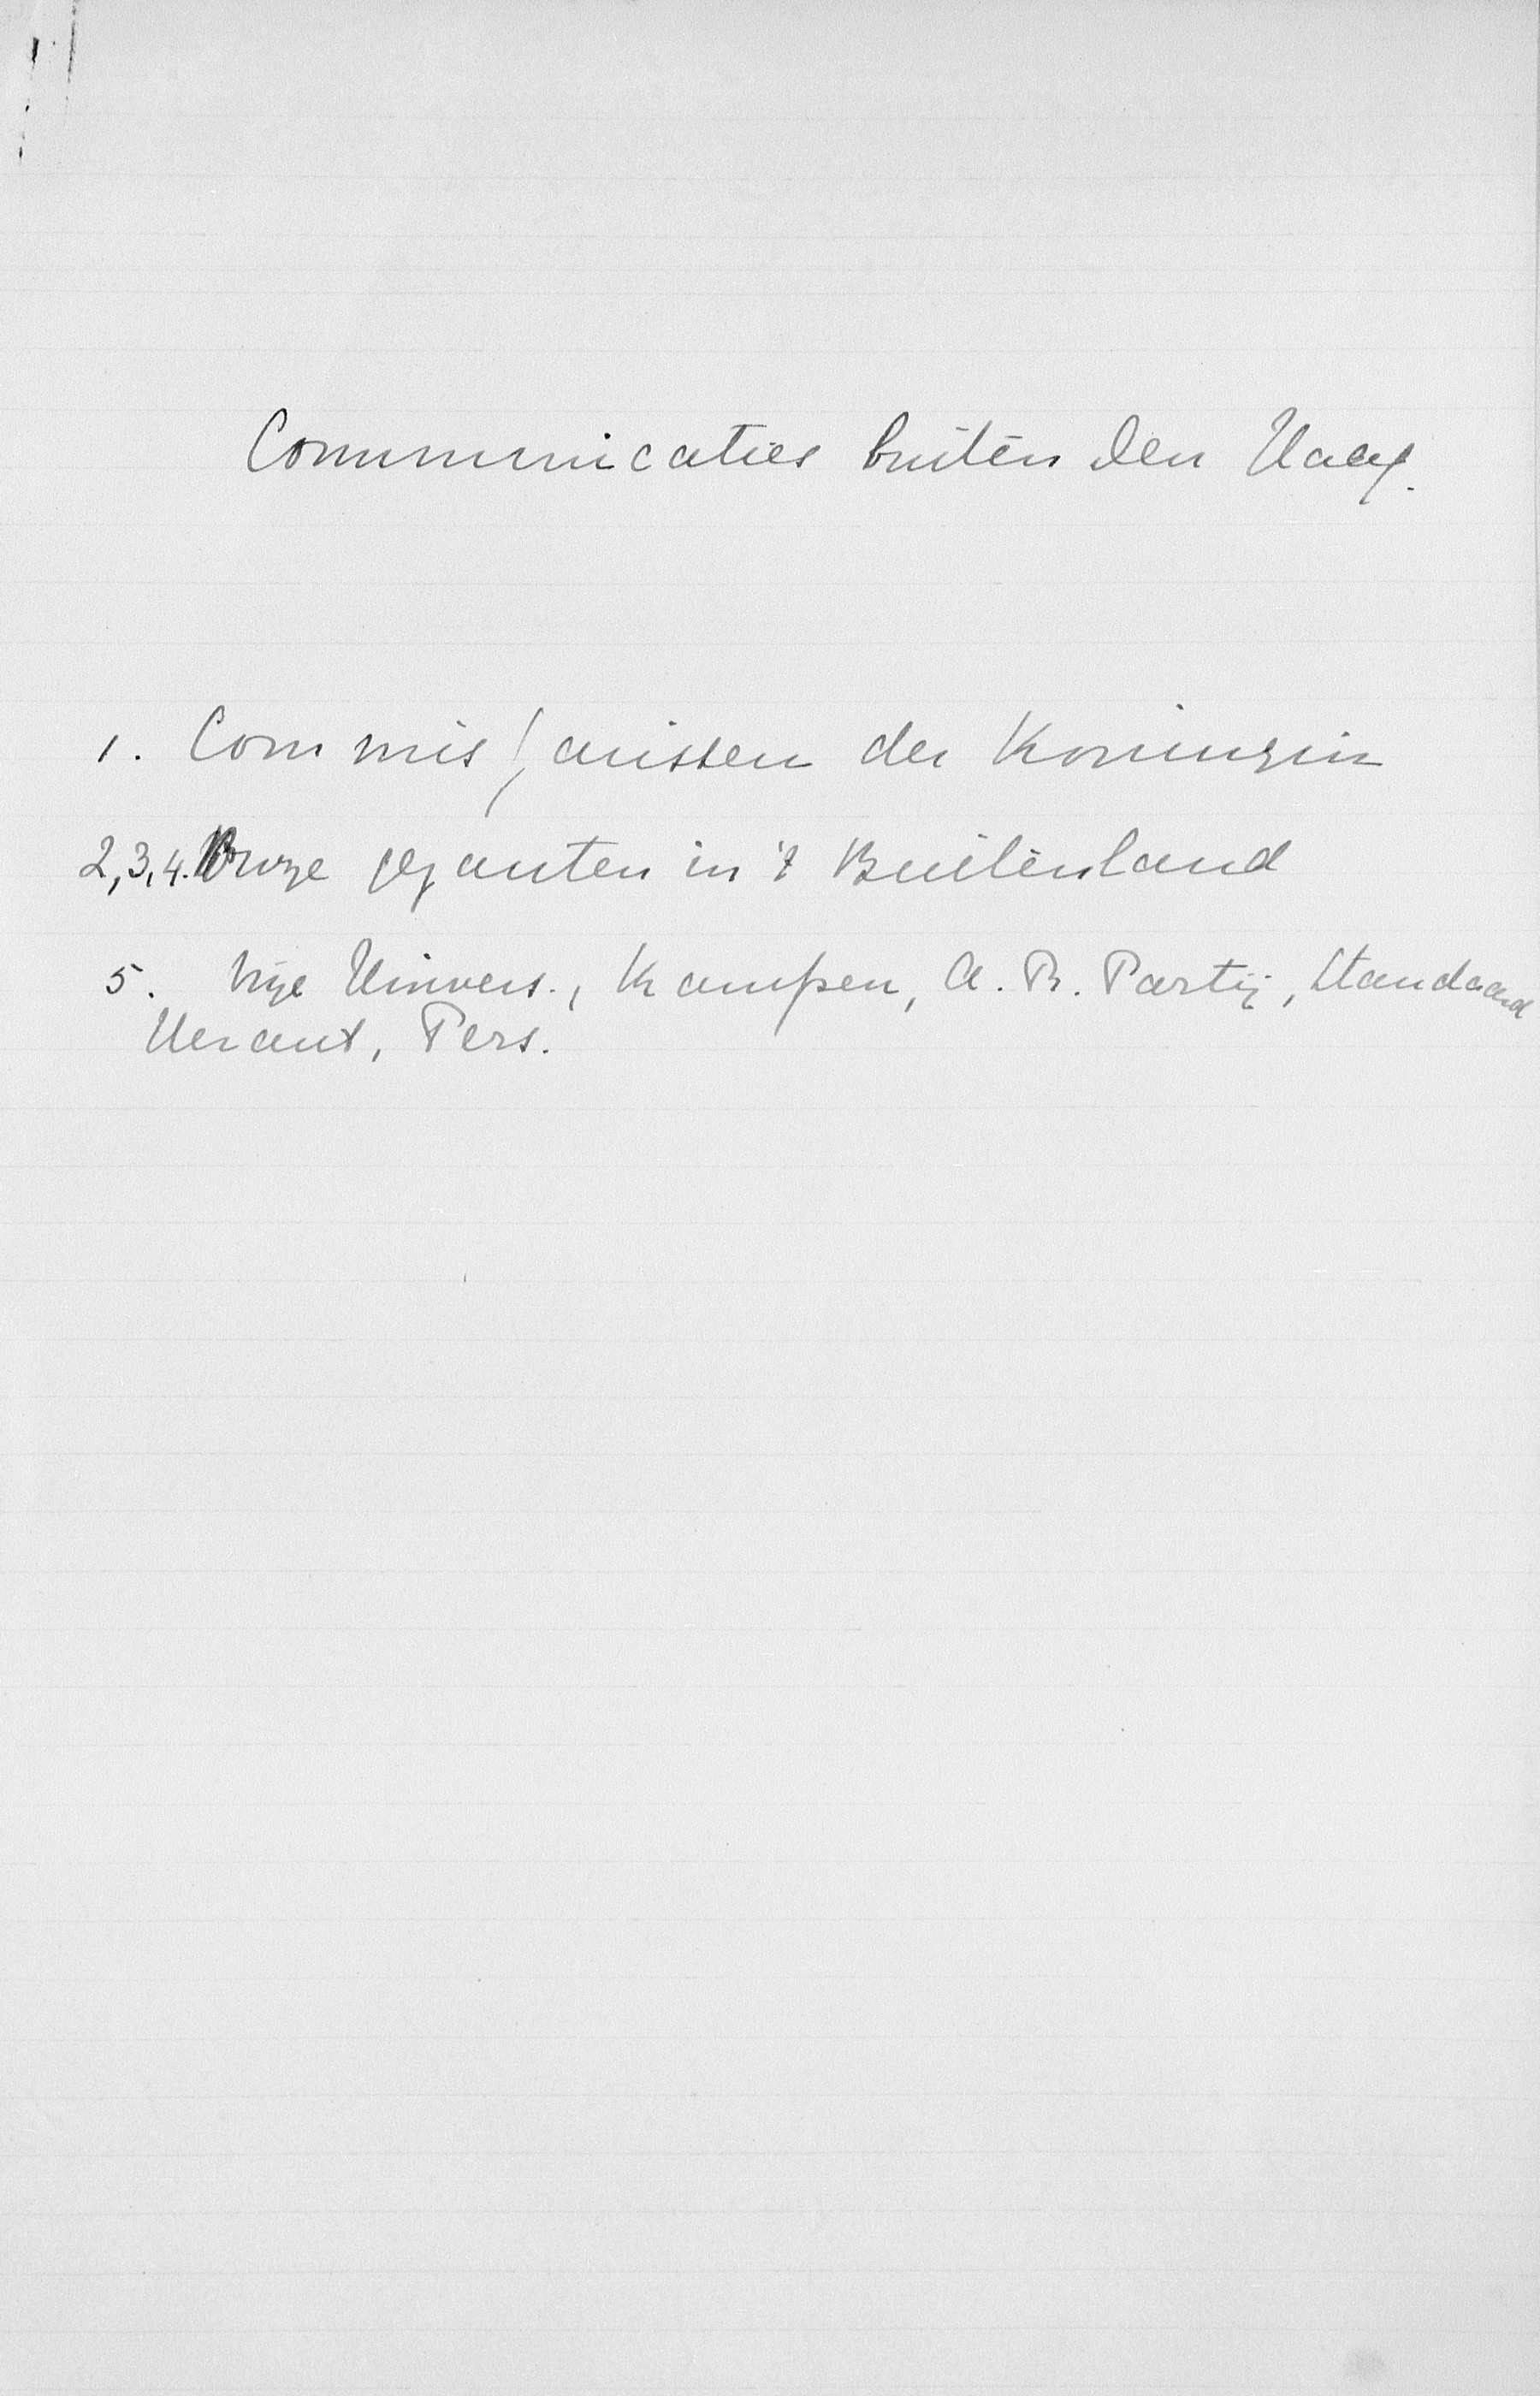 Communicaties buiten Den Haag.
1. Commissarissen der Koningin
2,3,4. Onze gezanten in 't Buitenland
5. Vrije Univers., Kampen, A. R. Partij, Standaard
Heraut, Pers.